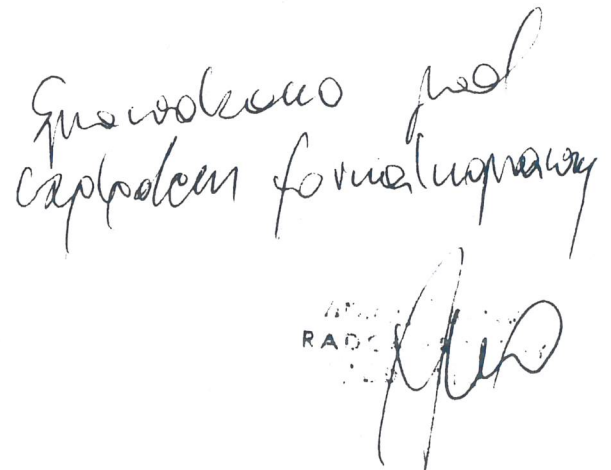 Sprawdzono pod
względem formalnoprawnym
RADC